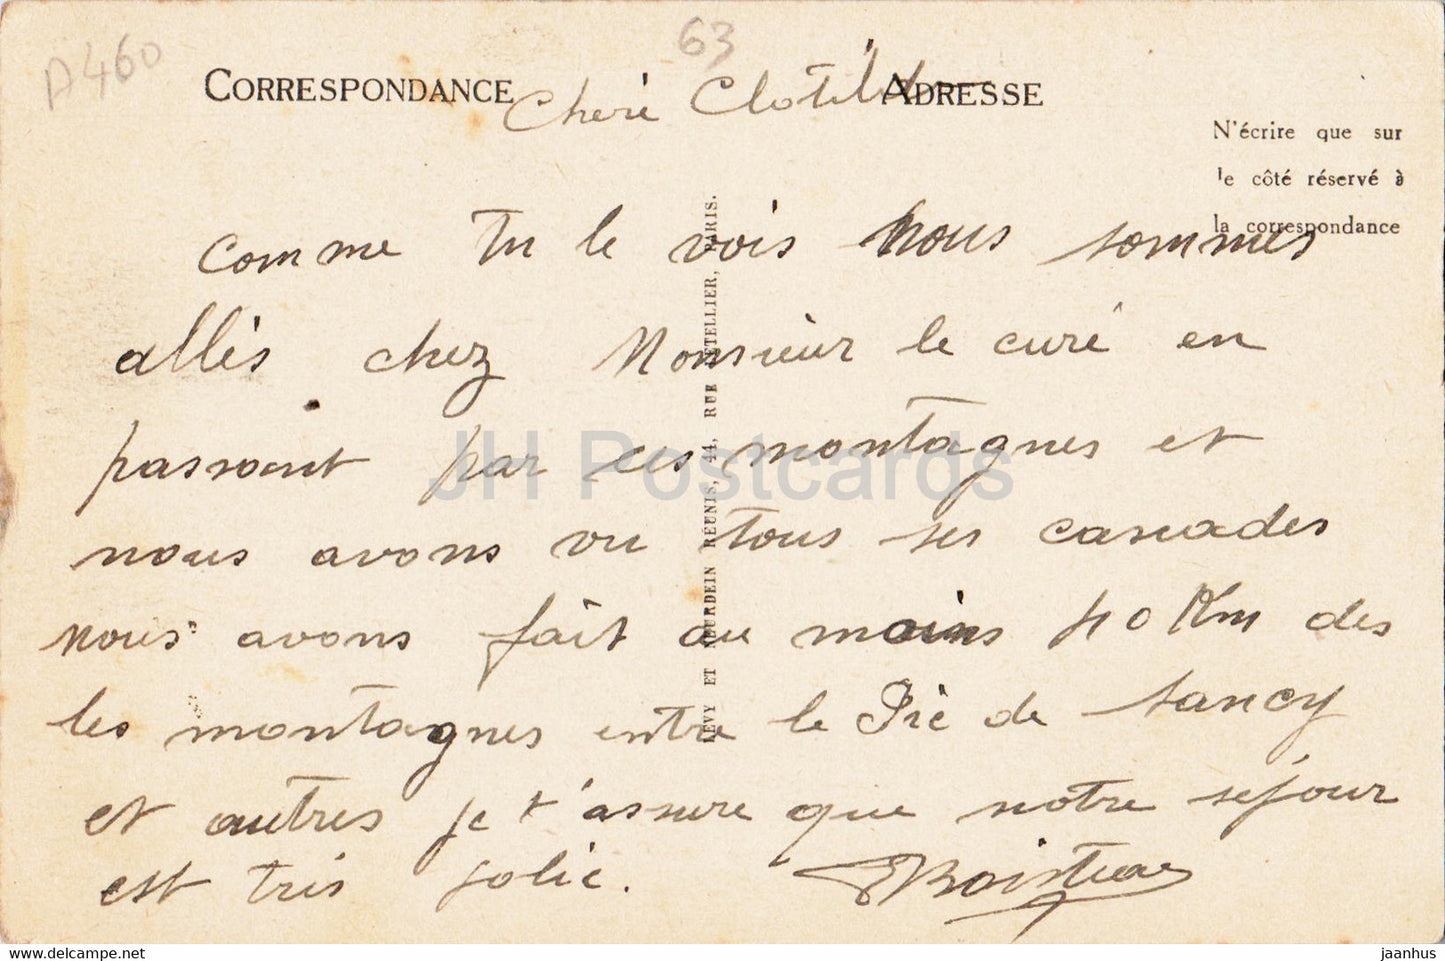 A460
63
CORRESPONDANCE
ADRESSE
Cheré Clotilde
N'écrire que sur
le côté réservé à
la correspondance
comme tu le vois nous sommes
allés chez Monsieur le curé en
passant par ces montagnes et
nous avons vu tous ses cascades
nous avons fait au moins 40 Km des
les montagnes entre le Pic de Sancy
et autres je t'assure que notre séjour
est très jolie.
LEVY ET NEURDEIN REUNIS, 44, RUE LETELLIER, PARIS.
JH Postcards
www.delcampe.net
jaanhus